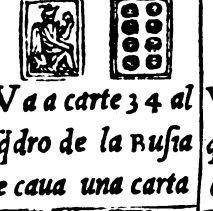 Va a carte 34 al
q̃dro de la Ruſia
e caua una carta